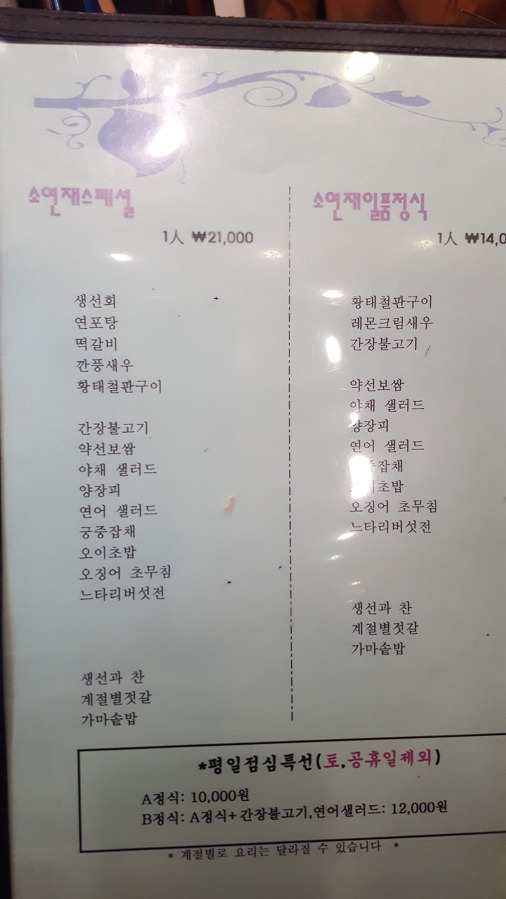 소연재스페셜
1人 ₩21,000
생선회
연포탕
떡갈비
깐풍새우
황태철판구이
간장불고기
약선보쌈
야채 샐러드
양장피
연어 샐러드
궁중잡채
오이초밥
오징어 초무침
느타리버섯전
생선과 찬
계절별젓갈
가마솥밥
소연재일품정식
1人 ₩14,0
황태철판구이
레몬크림새우
간장불고기
약선보쌈
야채 샐러드
양장피
연어 샐러드
중잡채
이초밥
오징어 초무침
느타리버섯전
생선과 찬
계절별젓갈
가마솥밥
*평일점심특선(토.공휴일제외)
A정식: 10,000원
B정식: A정식+간장불고기,연어샐러드: 12,000원
* 계절별로 요리는 달라질 수 있습니다 *